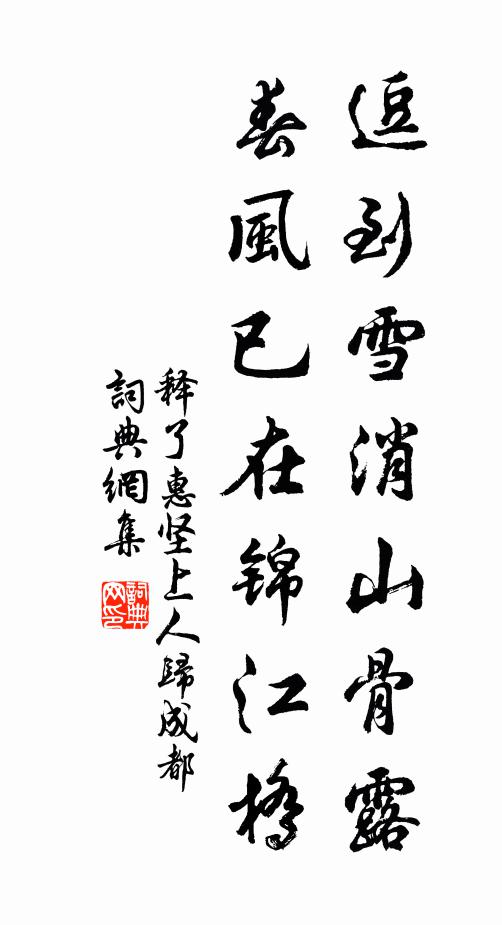 逗到雪消山骨露
春風已在锦江橋
释了惠坚上人歸成都
詞典網集
詞典网印